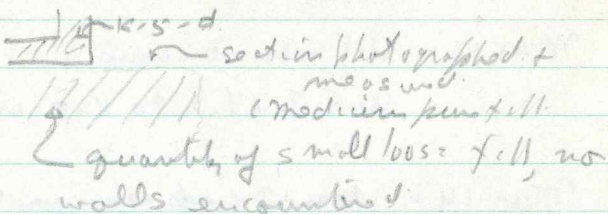 K-S-d
section photographed +
measured.
(medium fine fill.
quantity of small loose fill, no
walls encountered.